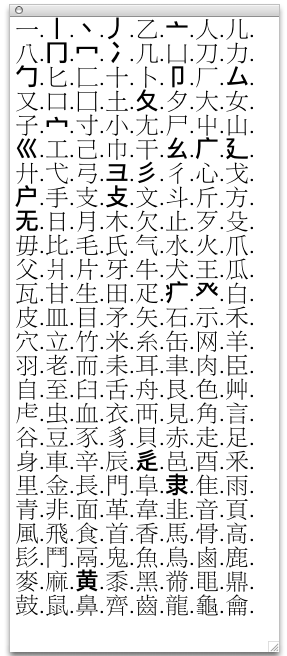 一.丨.丶.丿.乙.亠.人.儿.
八.冂.冖.冫.几.凵.刀.力.
勹.匕.匚.十.卜.卩.厂.厶.
又.口.囗.土.夂.夕.大.女.
子.宀.寸.小.尢.尸.屮.山.
巛.工.己.巾.干.幺.广.廴.
廾.弋.弓.彐.彡.彳.心.戈.
户.手.支.攴.文.斗.斤.方.
无.日.月.木.欠.止.歹.殳.
毋.比.毛.氏.气.水.火.爪.
父.爿.片.牙.牛.犬.王.瓜.
瓦.甘.生.田.疋.疒.癶.白.
皮.皿.目.矛.矢.石.示.禾.
穴.立.竹.米.糸.缶.网.羊.
羽.老.而.耒.耳.聿.肉.臣.
自.至.臼.舌.舟.艮.色.艸.
虍.虫.血.衣.襾.見.角.言.
谷.豆.豕.豸.貝.赤.走.足.
身.車.辛.辰.辵.邑.酉.釆.
里.金.長.門.阜.隶.隹.雨.
青.非.面.革.韋.韭.音.頁.
風.飛.食.首.香.馬.骨.高.
髟.鬥.鬲.鬼.魚.鳥.鹵.鹿.
麥.麻.黄.黍.黑.黹.黽.鼎.
鼓.鼠.鼻.齊.齒.龍.龜.龠.